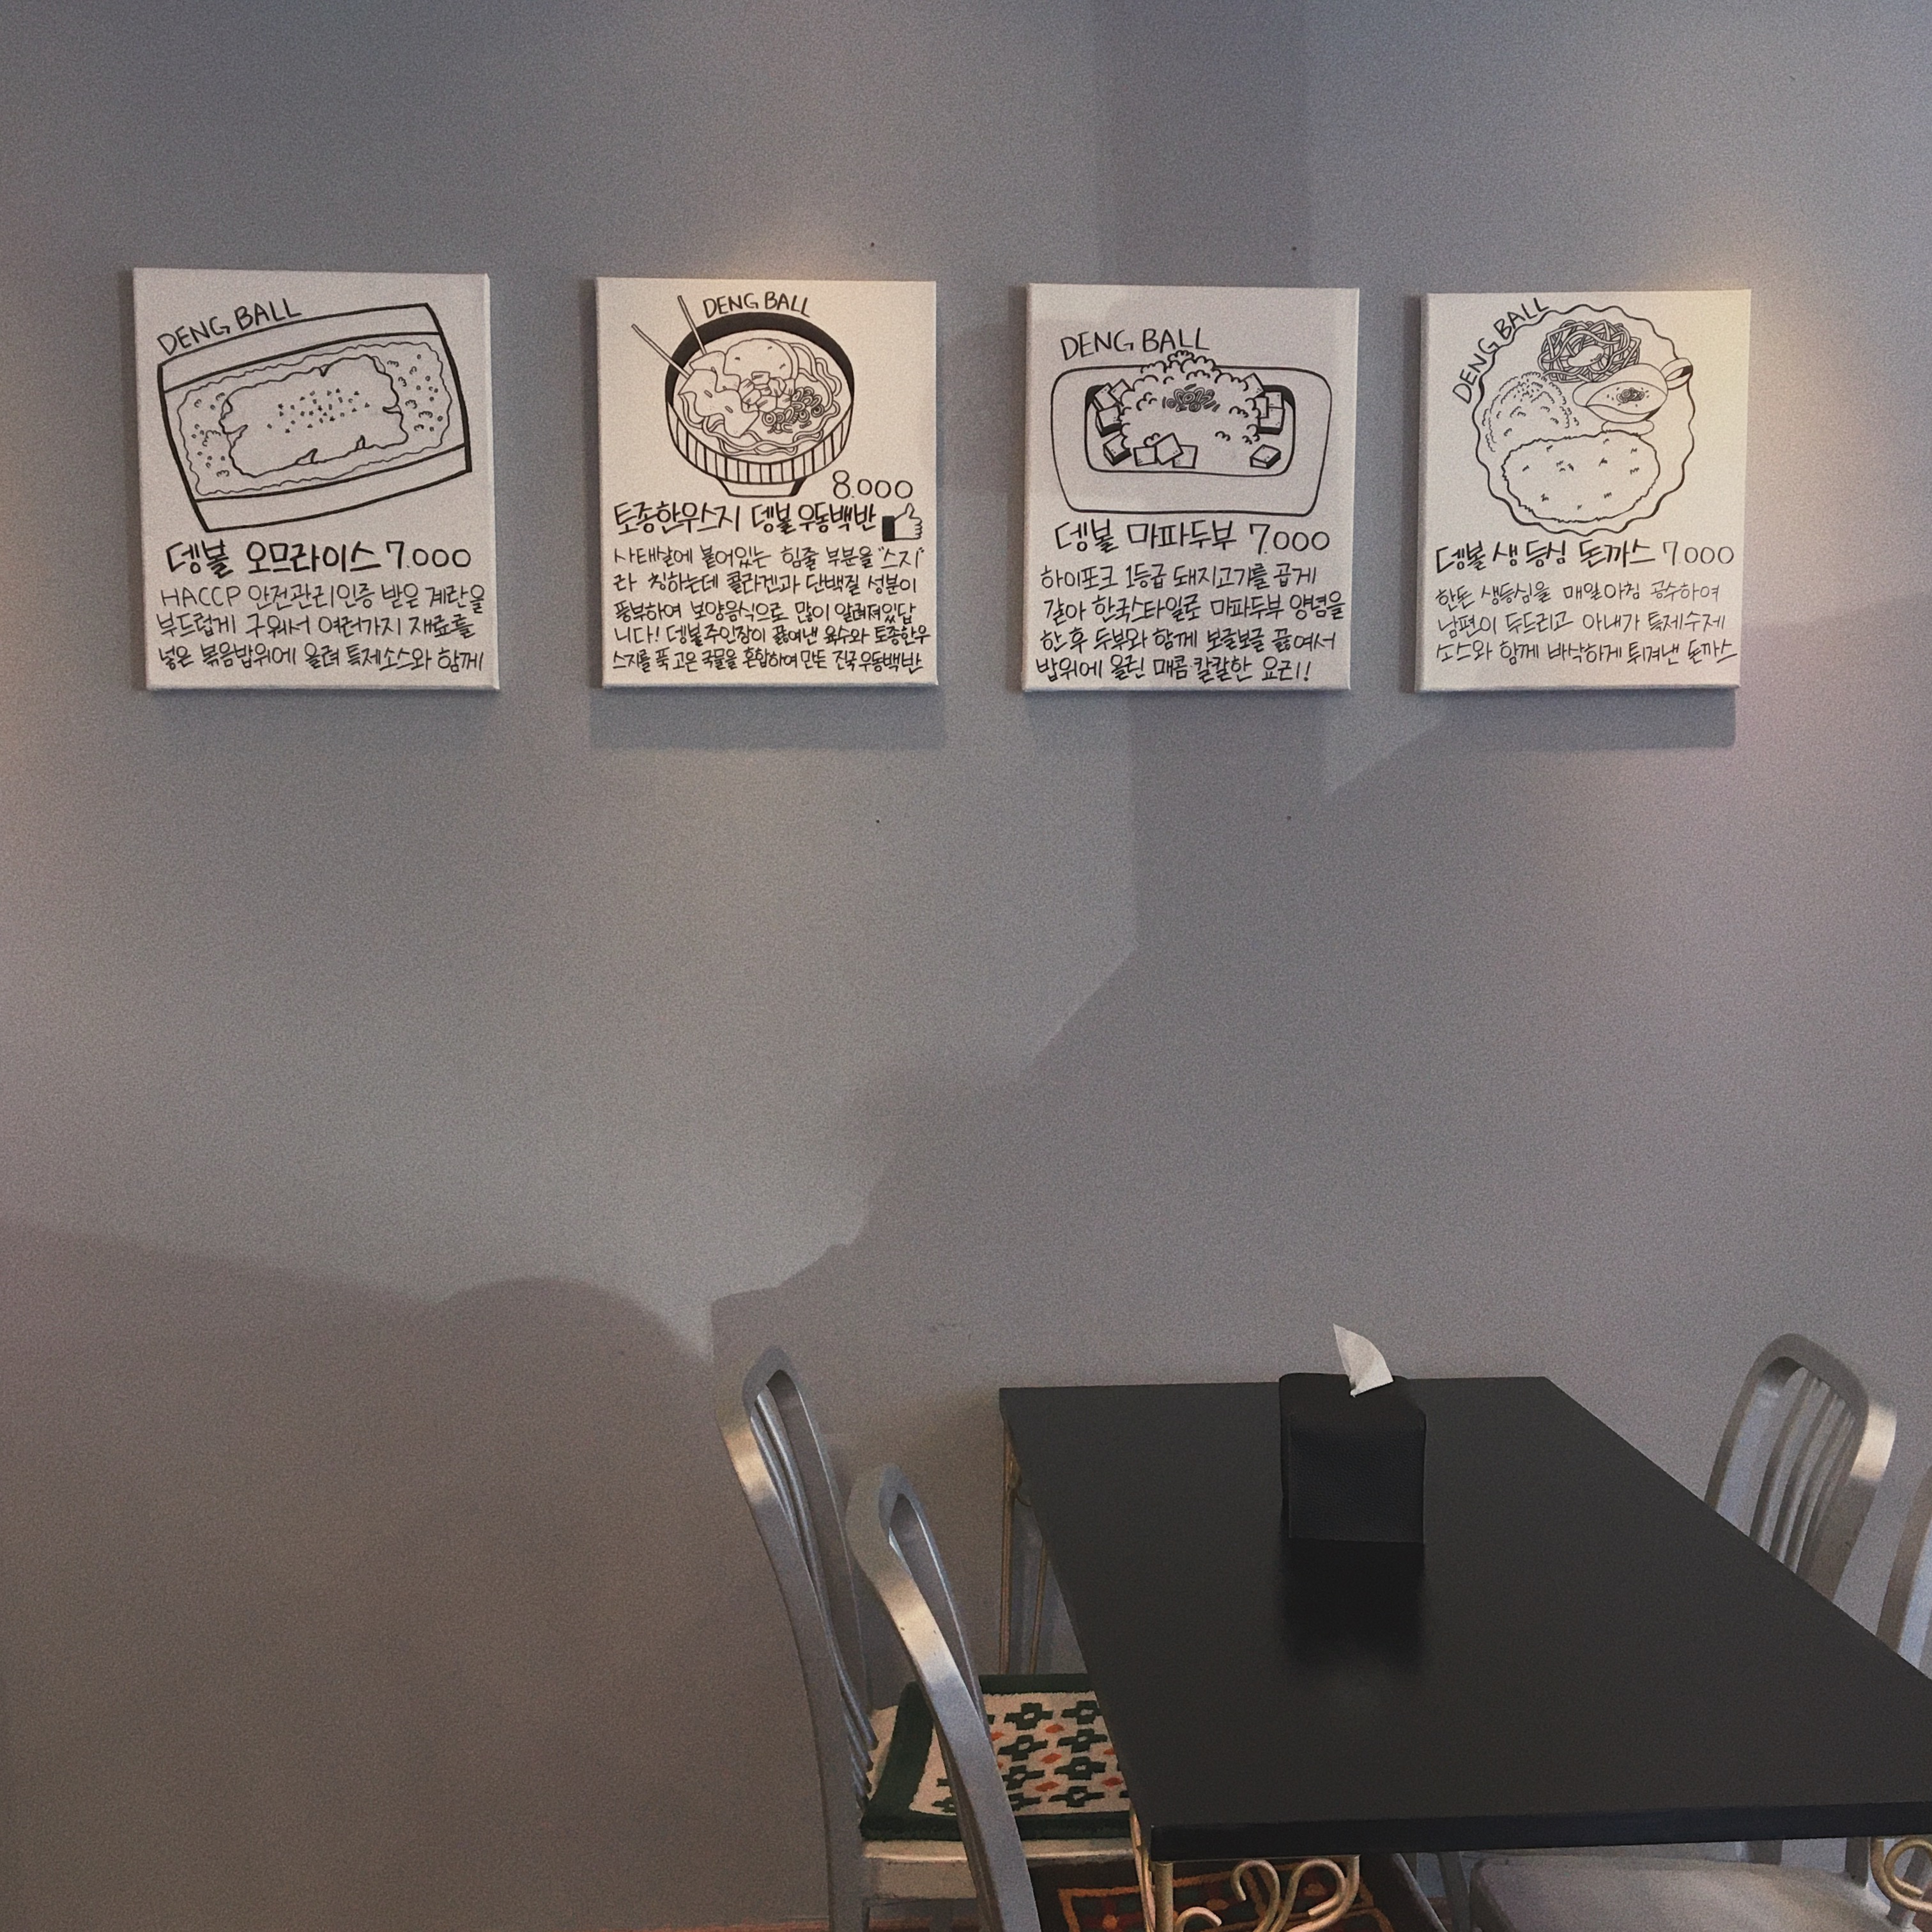 DENG BALL
뎅볼 오므라이스 7.000
HACCP 안전관리인증 받은 계란을
부드럽게 구워서 여러가지 재료를
넣은 볶음밥위에 올려 특제소스와 함께
DENG BALL
8.000
토종한우스지 뎅볼우동백반
사태살에 붙어있는 힘줄 부분을 "스지"
라 칭하는데 콜라겐과 단백질 성분이
풍부하여 보양음식으로 많이 알려져있답
니다! 뎅볼주인장이 끓여낸 육수와 토종한우
스지를 푹 고은 국물을 혼합하여 만든 진국 우동백반
DENG BALL
뎅볼 마파두부 7.000
하이포크 1등급 돼지고기를 곱게
갈아 한국스타일로 마파두부 양념을
한 후 두부와 함께 보글보글 끓여서
밥위에 올린 매콤·칼칼한 요리!
DENG BALL
뎅볼 생등심 돈까스 7.000
한돈 생등심을 매일아침 공수하여
남편이 두드리고 아내가 특제수제
소스와 함께 바삭하게 튀겨낸 돈까스